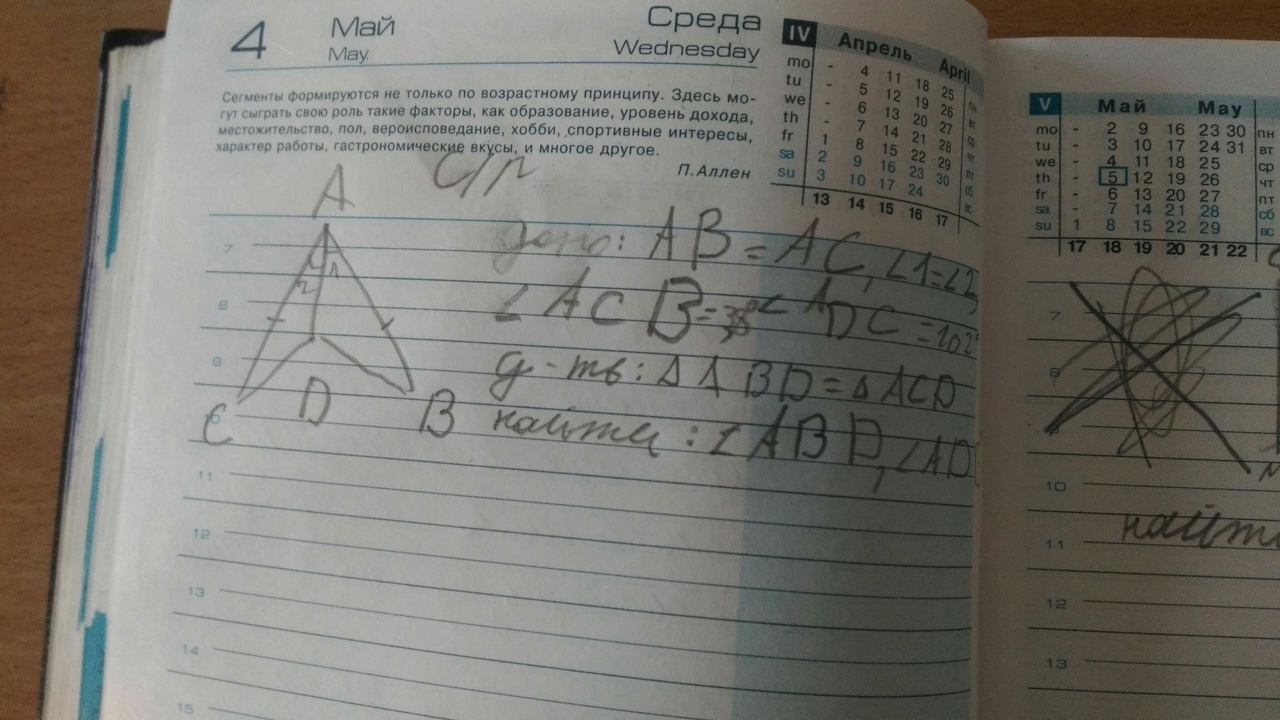 4 Май Среда
May Wednesday
Сегменты формируются не только по возрастному принципу. Здесь мо-
гут сыграть свою роль такие факторы, как образование, уровень дохода,
местожительство, пол, вероисповедание, хобби, спортивные интересы,
характер работы, гастрономические вкусы, и многое другое.
П.Аллен
IV Апрель April
mo - 4 11 18 25 пн
tu - 5 12 19 26 вт
we - 6 13 20 27 ср
th - 7 14 21 28 чт
fr 1 8 15 22 29 пт
sa 2 9 16 23 30 сб
su 3 10 17 24 вс
13 14 15 16 17
С/р
A
1
2
C D B
дано: AB = AC, ∠1=∠2,
∠ACB=38° ∠ADC=102°
д-ть: ΔABD=ΔACD
найти: ∠ABD, ∠AD
7
8
9
11
12
13
14
15
V Май May
mo - 2 9 16 23 30 пн
tu - 3 10 17 24 31 вт
we - 4 11 18 25 ср
th - 5 12 19 26 чт
fr - 6 13 20 27 пт
sa - 7 14 21 28 сб
su 1 8 15 22 29 вс
17 18 19 20 21 22
7
8
10
найти
11
12
13